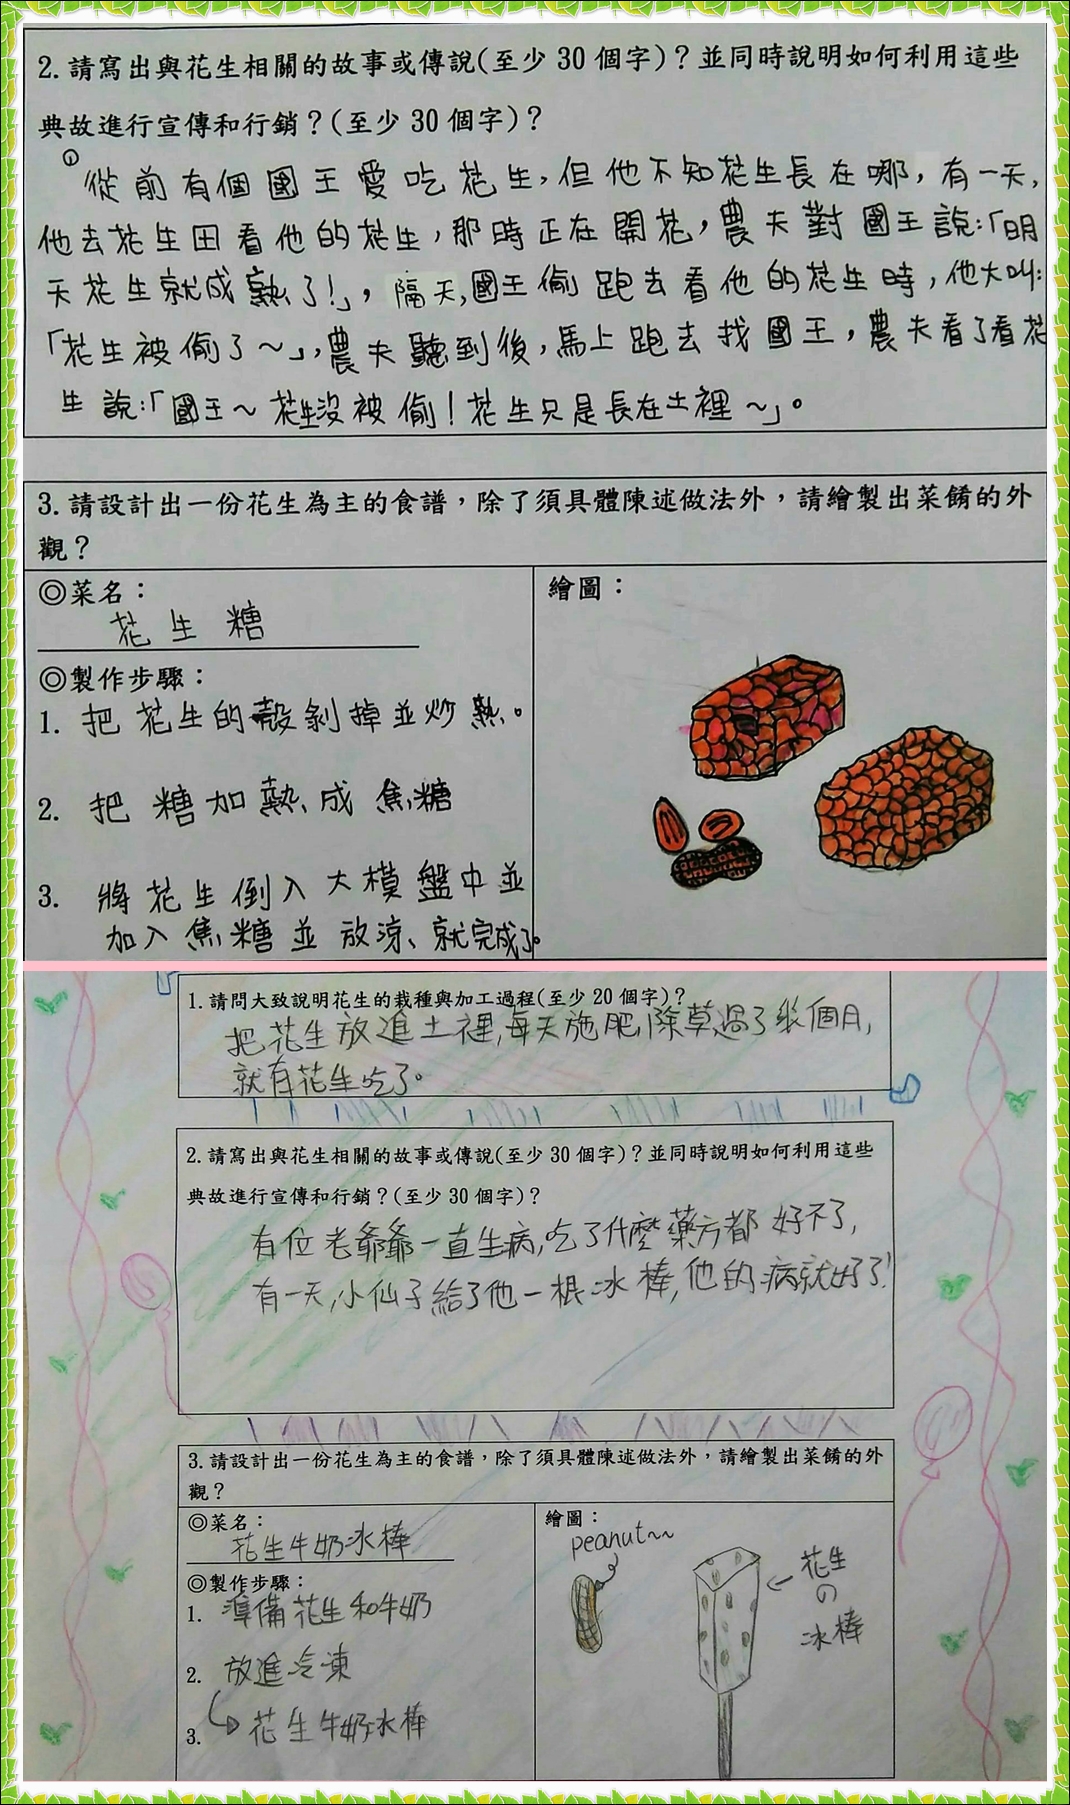 2.請寫出與花生相關的故事或傳說(至少 30 個字)？並同時說明如何利用這些
典故進行宣傳和行銷？(至少 30 個字)？
①
從前有個國王愛吃花生,但他不知花生長在哪,有一天,
他去花生田看他的花生,那時正在開花,農夫對國王說:「明
天花生就成熟了!」,隔天,國王偷跑去看他的花生時,他大叫:
「花生被偷了~」,農夫聽到後,馬上跑去找國王,農夫看了看花
生說:「國王~花生沒被偷!花生只是長在土裡~」。
3.請設計出一份花生為主的食譜，除了須具體陳述做法外，請繪製出菜餚的外
觀？
◎菜名：
花生糖
◎製作步驟：
1. 把花生的殼剝掉並炒熟。
2. 把糖加熱成焦糖
3. 將花生倒入大模盤中並
加入焦糖並放涼、就完成了。
繪圖：
1.請問大致說明花生的栽種與加工過程(至少 20 個字)？
把花生放進土裡,每天施肥,除草過了幾個月,
就有花生吃了。
2.請寫出與花生相關的故事或傳說(至少 30 個字)？並同時說明如何利用這些
典故進行宣傳和行銷？(至少 30 個字)？
有位老爺爺一直生病,吃了什麼藥方都好不了,
有一天,小仙子給了他一根冰棒,他的病就好了!
3.請設計出一份花生為主的食譜，除了須具體陳述做法外，請繪製出菜餚的外
觀？
◎菜名：
花生牛奶冰棒
◎製作步驟：
1. 準備花生和牛奶
2. 放進冷凍
3. 花生牛奶冰棒
繪圖：
peanut~~
花生
の
冰棒